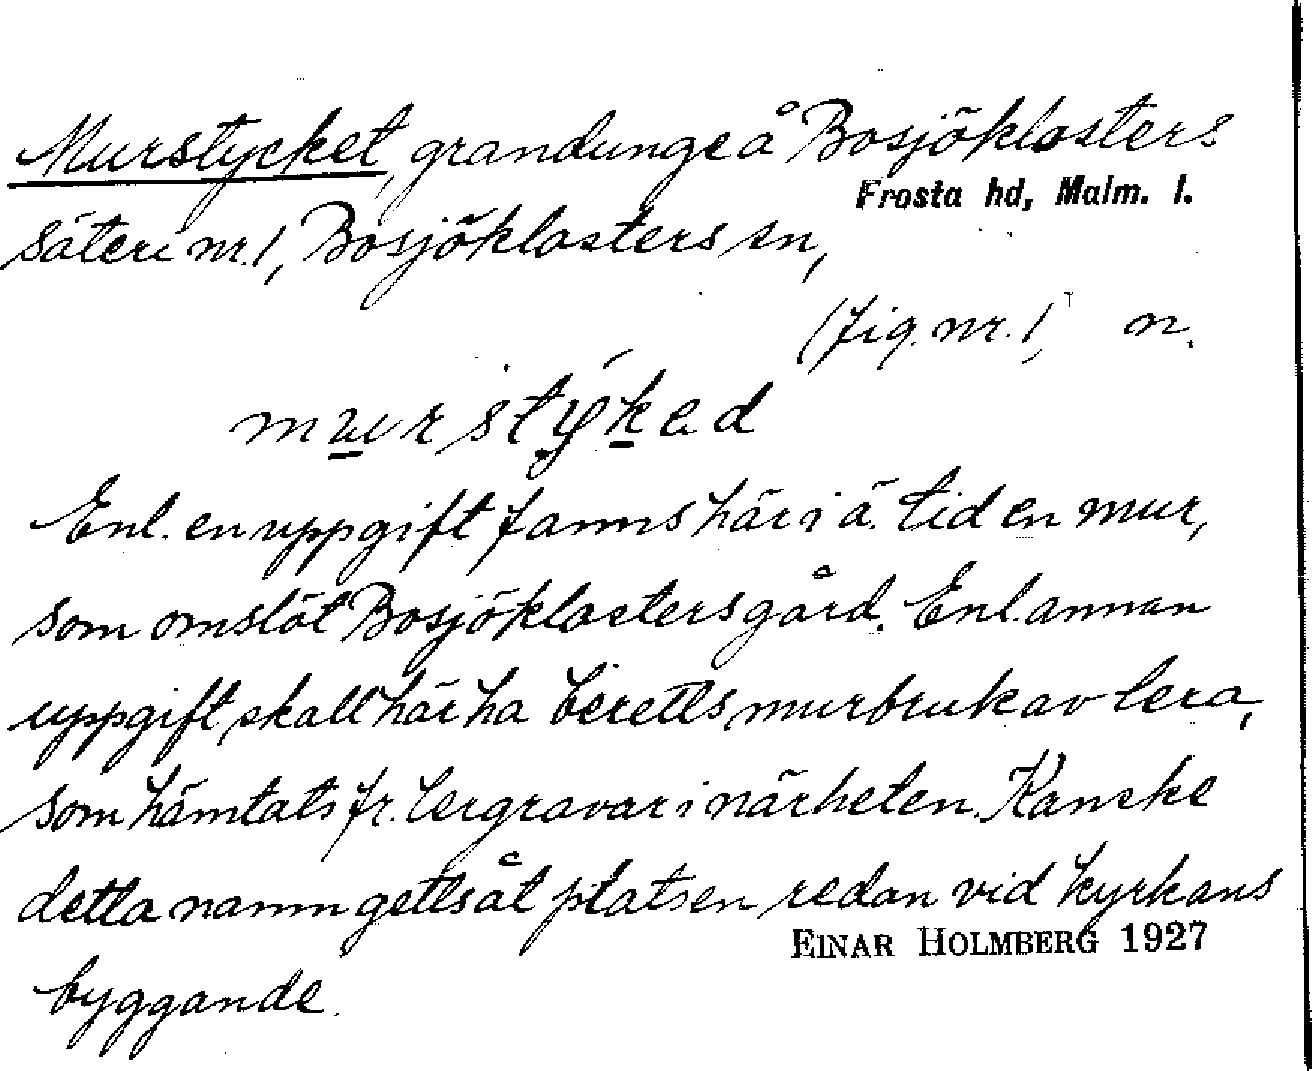 Murstycket, grandunge å Bosjöklosters
Frosta hd, Malm. l.
Säteri nr. 1, Bosjöklosters sn,
(Fig. nr. 1, n.
murstýked
Enl. en uppgift fanns här i ä. tid en mur,
som omslöt Bosjöklosters gård. Enl. annan
uppgift skall här ha beretts murbruk av lera,
som hämtats fr. lergravar i närheten. Kanske
detta namn getts åt platsen redan vid kyrkans
EINAR HOLMBERG 1927
byggande.